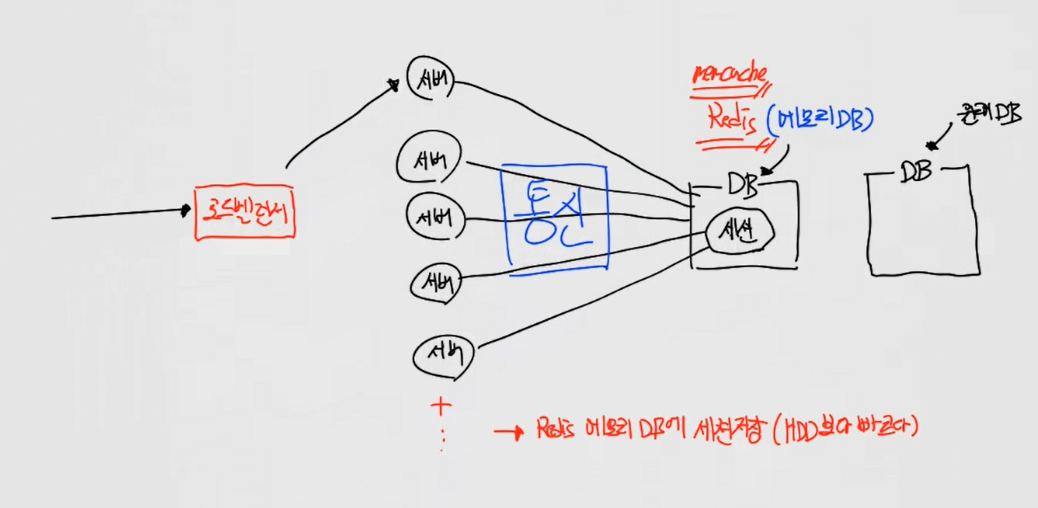 로드밸런서
서버
서버
서버
서버
서버
+
토지
인
memcache
Redis (메모리DB)
DB
세션
원래DB
DB
→ Redis 메모리 DB에 세션저장 (HDD보다 빠르다)